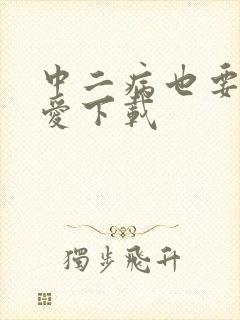 中二病也要
愛下載
獨步飛升